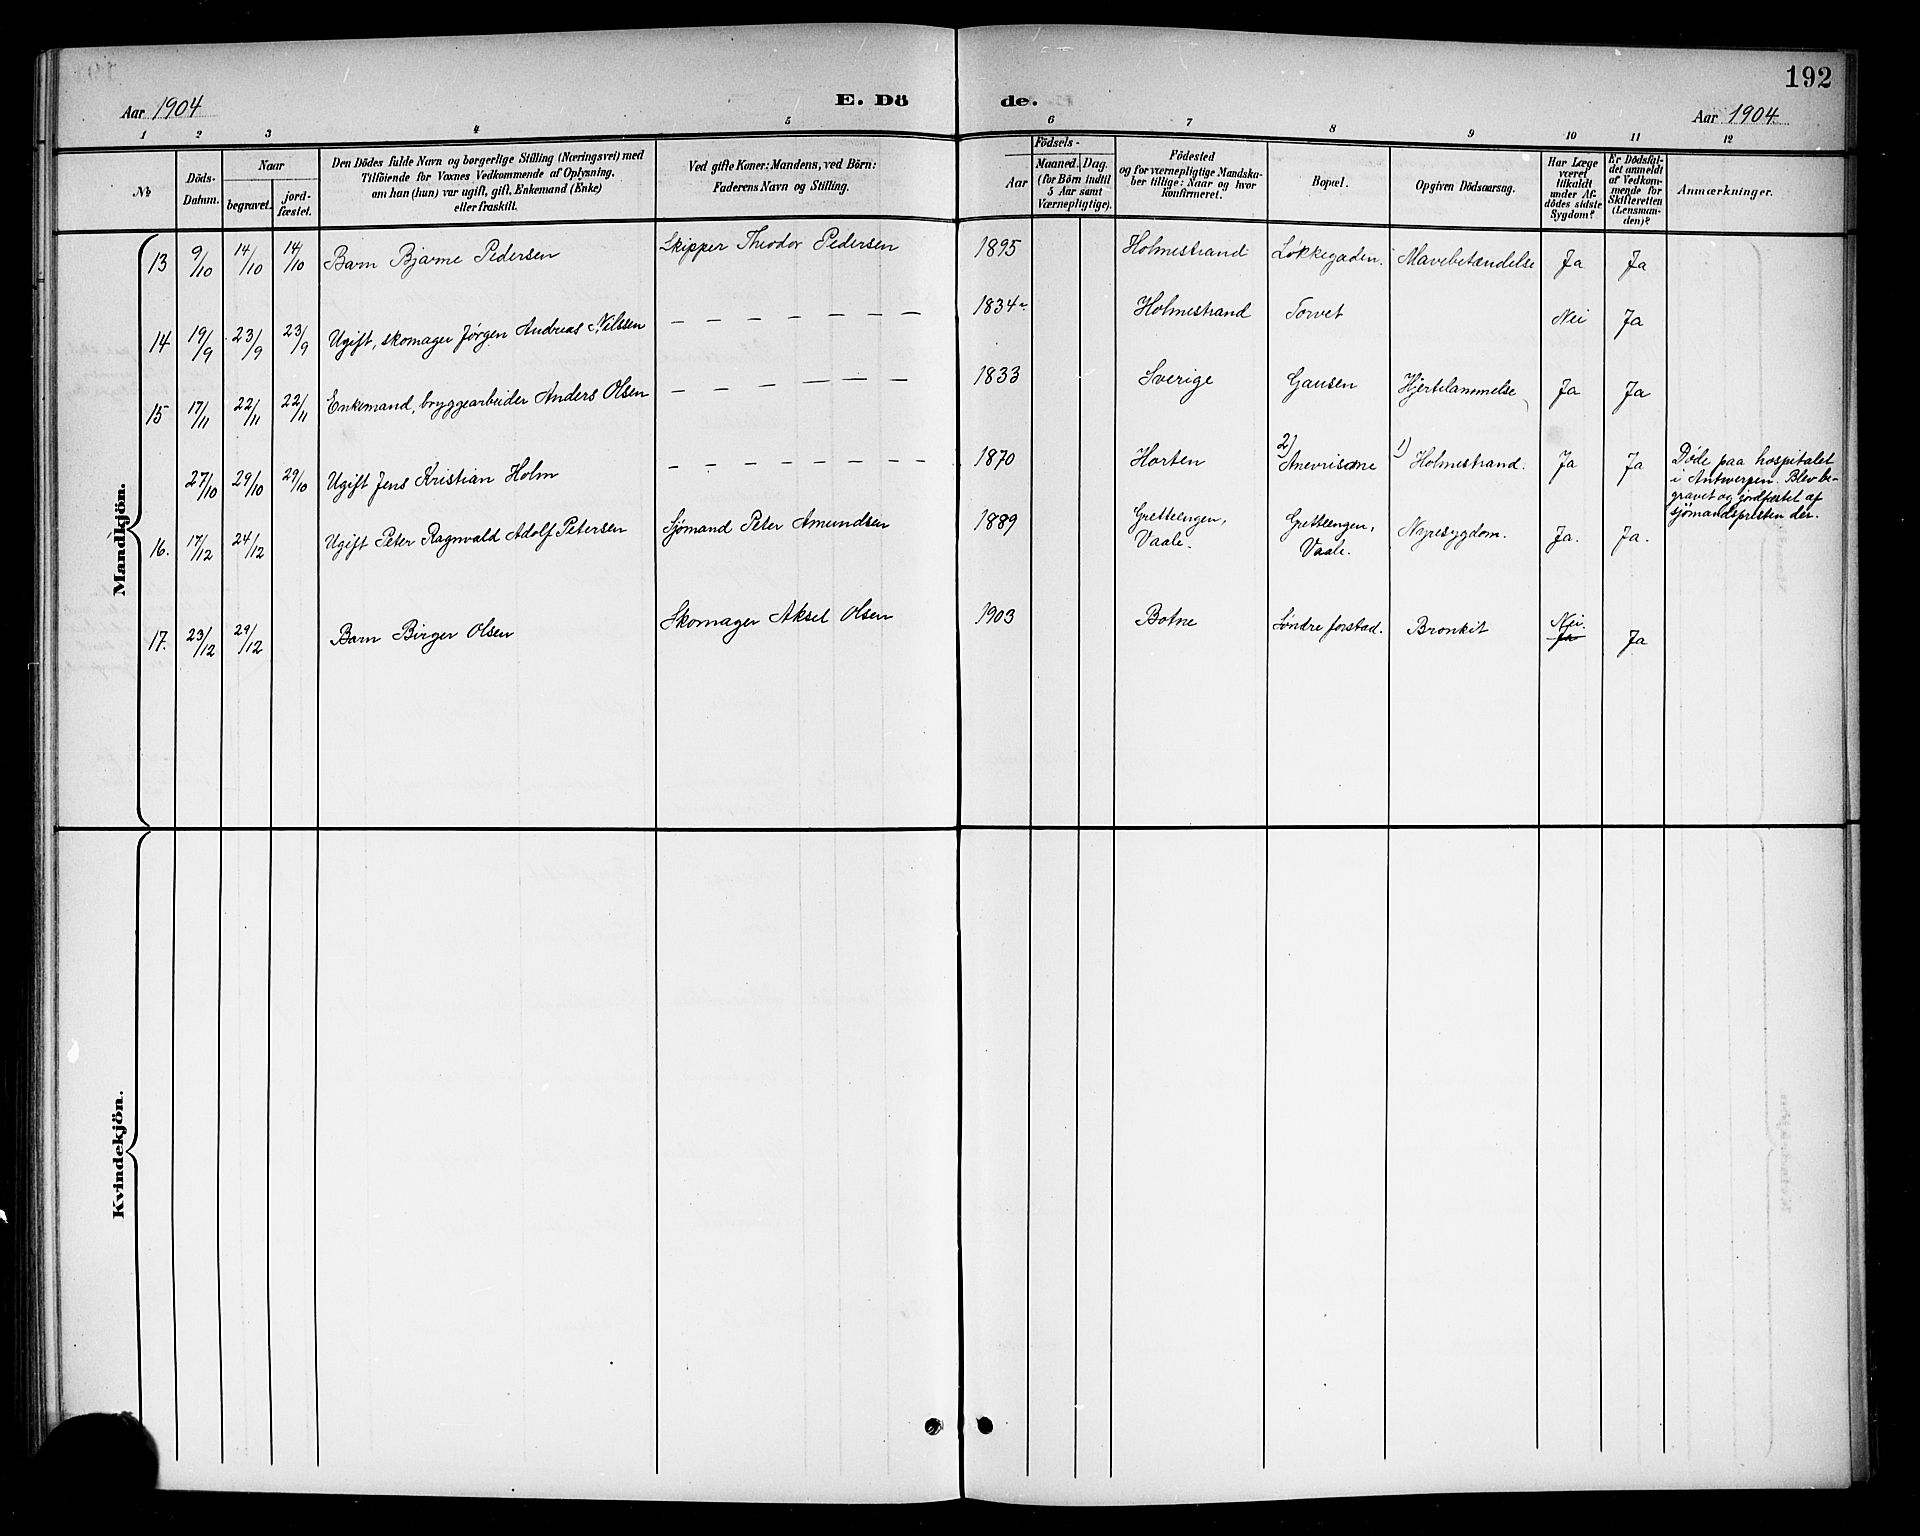 192
Aar 1904 E. Dö de. Aar 1904
1 2 3 4 5 6 7 8 9 10 11 12
№
Döds-
Datum.
Naar
begravet.
jord-
fæstet.
Den Dödes fulde Navn og borgerlige Stilling (Næringsvei) med
Tilföiende for Voxnes Vedkommende af Oplysning,
om han (hun) var ugift, gift, Enkemand (Enke)
eller fraskilt.
Ved gifte Koner: Mandens, ved Börn:
Faderens Navn og Stilling.
Födsels-
Aar
Maaned. Dag.
(for Börn indtil
5 Aar samt
Værnepligtige).
Födested
og for værnepligtige Mandska-
ber tillige: Naar og hvor
konfirmeret.
Bopæl.
Opgiven Dödsaarsag.
Har Læge
været
tilkaldt
under Af-
dödes sidste
Sygdom?
Er Dödsfal-
det anmeldt
af Vedkom-
mende for
Skifteretten
(Lensman-
den)?
Anmærkninger.
Mandkjön.
13 9/10 14/10 14/10 Barn Bjarne Pedersen Skipper Theodor Pedersen 1895 Holmestrand Løkkegaden. Mavebetændelse Ja Ja
14 19/9 23/9 23/9 Ugift, skomager Jørgen Andreas Nilssen — — — — — — — 1834 Holmestrand Torvet Nei Ja
15 17/11 22/11 22/11 Enkemand, bryggearbeider Anders Olsen — — — — — — 1833 Sverige Gausen Hjertelammelse Ja Ja
27/10 29/10 29/10 Ugift Jens Kristian Holm — — — — — — — 1870 Horten 2) Anevrisme 1) Holmestrand. Ja Ja Døde paa hospitalet
i Antwerpen. Blev be-
gravet og jordfæstet af
sjømandspresten der.
16. 17/12 24/12 Ugift Peter Ragnvald Adolf Petersen Sjømand Peter Amundsen 1889 Grettengen, Vaale. Grettengen, Vaale. Nyresygdom. Ja. Ja.
17. 23/12 29/12 Barn Birger Olsen Skomager Aksel Olsen 1903 Botne Søndre forstad. Bronkit Nei. Ja Ja
Kvindekjön.